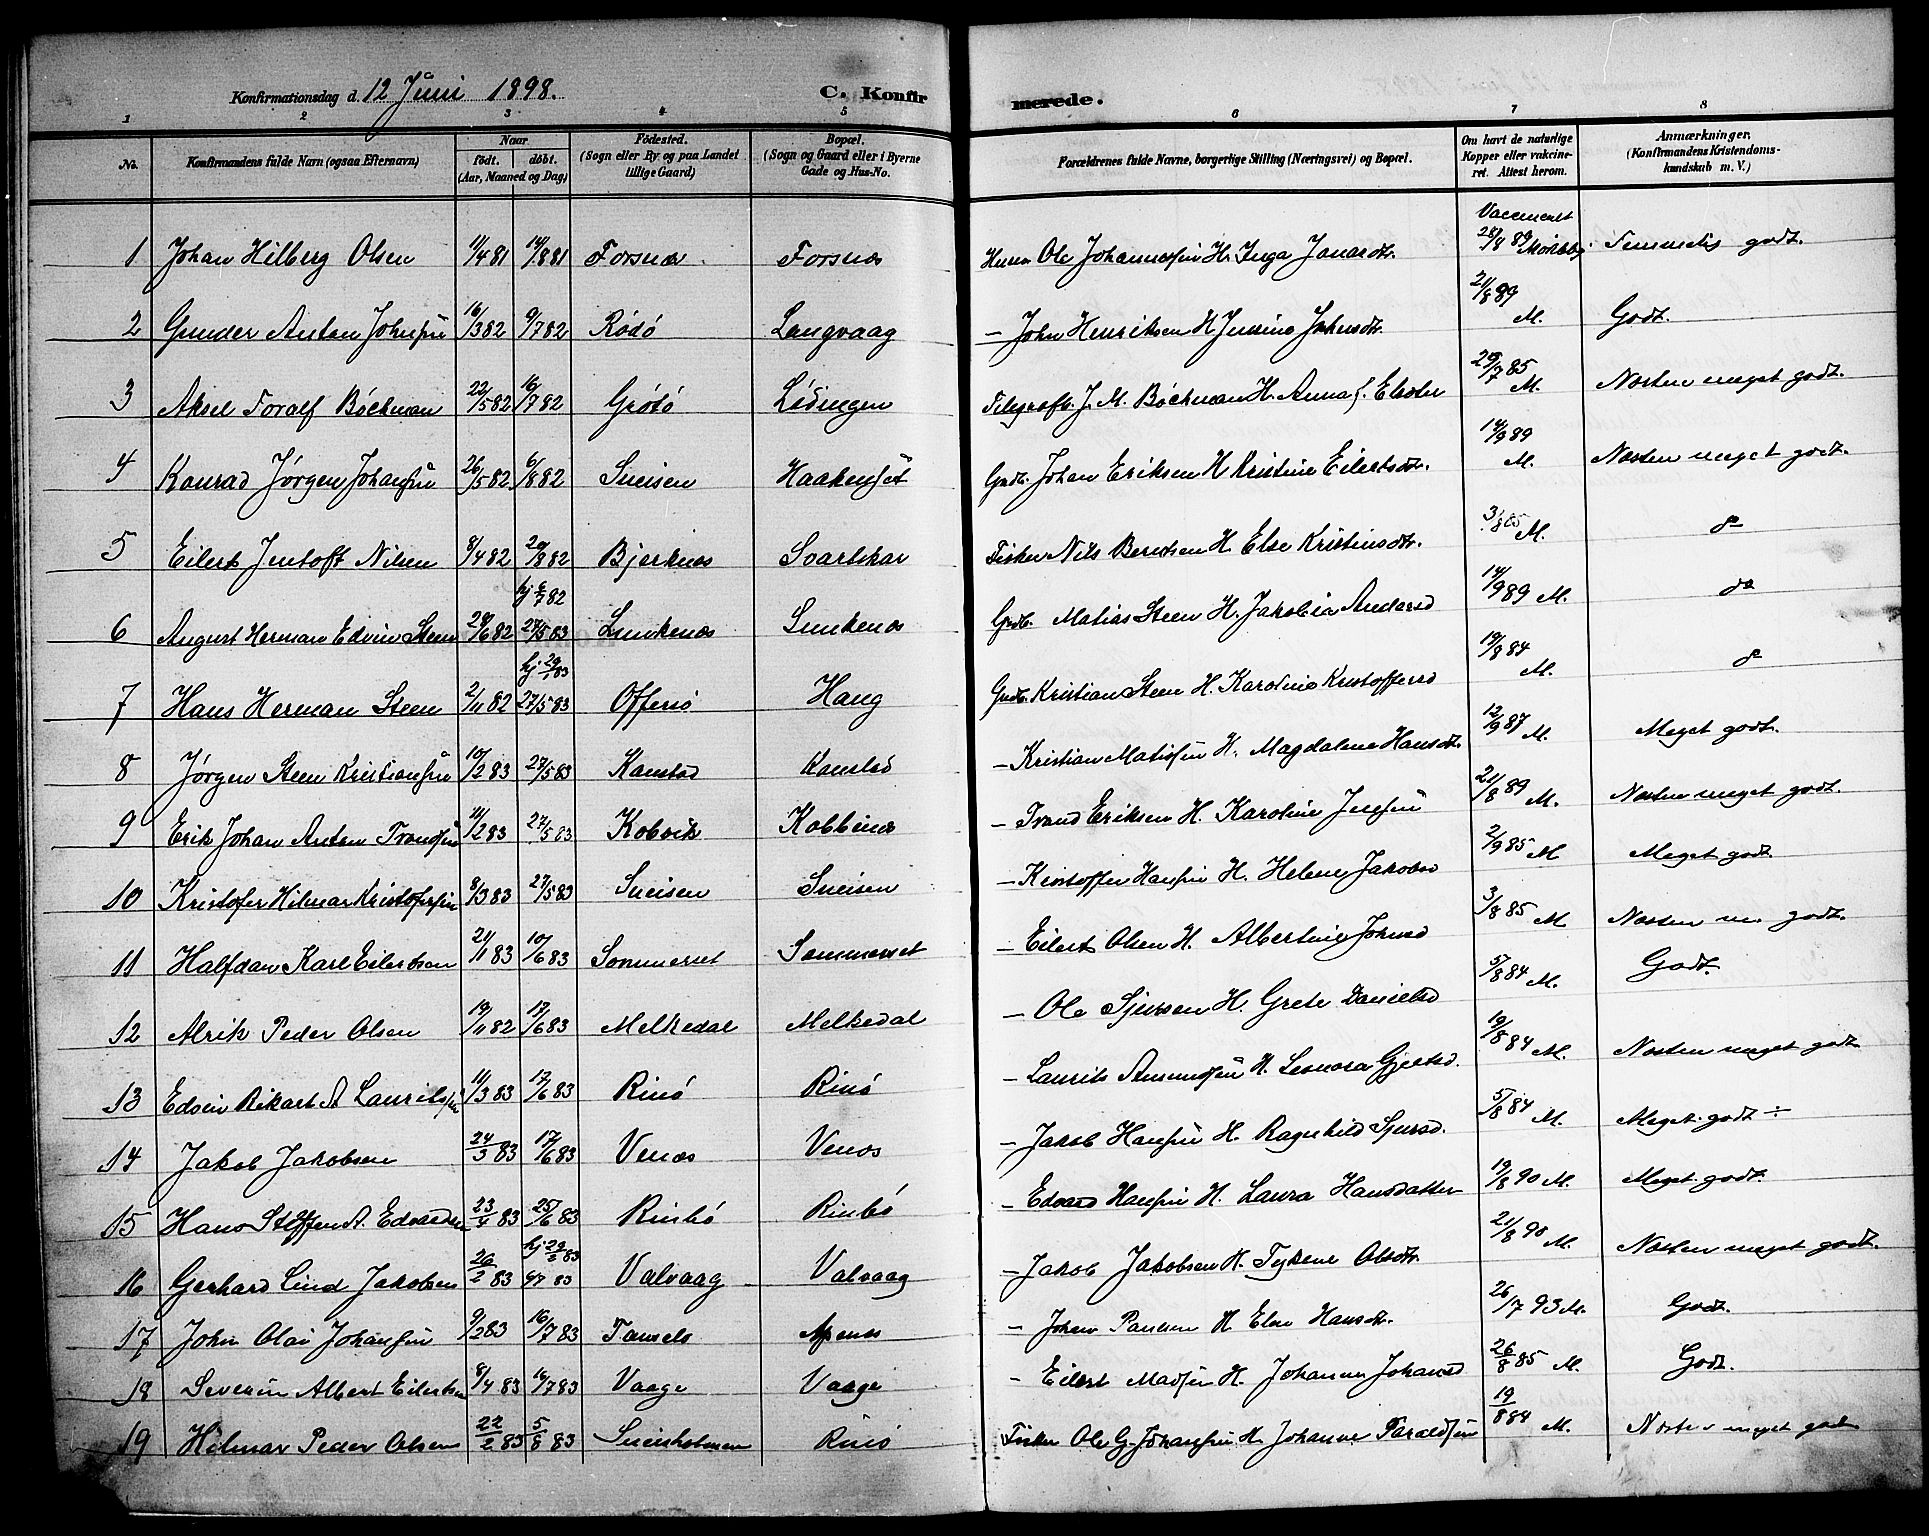 Konfirmationsdag d. 12 Juni 1898. C. Konfirmerede.
1 2 3 4 5 6 7 8
No. Konfirmandens fulde Navn (ogsaa Efternavn) Naar født. døbt. (Aar, Maaned og Dag) Födested. (Sogn eller By og paa Landet tillige Gaard) Bopæl. (Sogn og Gaard eller i Byerne Gade og Hus-No. Forældrenes fulde Navne, borgerlige Stilling (Næringsvei) og Bopæl. Om havt de naturlige Kopper eller vakcineret. Attest herom. Anmærkninger. (Konfirmandens Kristendomskundskab m. V.)
1 Johan Hilberg Olsen 11/4 81 14/8 81 Forsnæs Forsnæs Ole Johannessen H. Inga Janasdtr. 28/8 89 Temmelig godt.
2 Gunder Anton Johnsen 16/3 82 9/7 82 Rødø Langvaag - John Henriksen H. Jensine Johnsdtr. 21/8 89 M. Godt.
3 Aksel Toralf Bøckman 22/5 82 16/7 82 Grøtø Lødingen Telegrafb. J. M. Bøckman H. Anna f. Elster 29/7 85 M. Næsten meget godt.
4 Konrad Jørgen Johansen 26/5 82 6/8 82 Sneisen Haakenset Grdb. Johan Eriksen H. Kristine Eilertsdtr. 14/9 89 M. Næsten meget godt.
5 Eilert Jentoft Nilsen 8/4 82 20/8 82 Bjerknes Svartskar Fisker Nils Berntsen H. Else Kristinsdtr. 3/8 85 M. do
6 August Herman Edvin Steen 28/6 82 hj. 6/7 82 27/5 83 Lenkenæs Lenkenæs Grdb. Matias Steen H. Jakobia Andersd 14/9 89 M. do
7 Hans Herman Steen 2/11 82 hj. 29/1 83 27/5 83 Offersø Haug Grdb. Kristian Steen H. Karoline Kristoffersd 19/8 84 M. do
8 Jørgen Steen Kristiansen 10/2 83 27/5 83 Kanstad Kanstad - Kristian Matisen H. Magdalene Hansdtr. 12/9 87 M. Meget godt.
9 Erik Johan Anton Trondsen 11/2 83 27/5 83 Kobvik Kobbenes - Trond Eriksen H. Karoline Jensen 21/8 89 M. Næsten meget godt.
10 Kristofer Hilmar Kristofersen 8/3 83 27/5 83 Sneisen Sneisen - Kristoffer Hansen H. Helene Jakobsd 2/9 85 M Meget godt
11 Halfdan Karl Eilertsen 21/1 83 10/6 83 Sommerset Sommerset - Eilert Olsen H. Albertine Johnsd 3/8 85 M Næsten m. godt.
12 Alrik Peder Olsen 19/11 82 17/6 83 Melkedal Melkedal - Ole Sjursen H. Grete Danielsd 5/8 84 M. Godt.
13 Edvin Rikart A Lauritssen 11/3 83 17/6 83 Rinø Rinø - Laurits Amundsen H. Leonora Gjertsd. 19/8 84 M. Næsten meget godt
14 Jakob Jakobsen 24/3 83 17/6 83 Venæs Venæs - Jakob Hansen H. Ragnhild Sjursd. 5/8 84 M. Meget godt ÷
15 Hans Steffen A. Edvardsen 23/4 83 25/6 83 Rinbø Rinbø - Edvard Hansen H. Laura Hansdatter 19/8 90 M. Meget godt.
16 Gerhard Lind Jakobsen 26/2 83 9/7 83 Valvaag Valvaag - Jakob Jakobsen H. Olsdtr. 21/8 90 M. Næsten meget godt.
17 John Olai Johansen 9/2 83 16/7 83 - Johan Paulsen H. Else Hansdtr. 26/7 93 M. Godt.
18 Severin Albert Eilertsen 8/4 83 16/7 83 Vaage Vaage - Eilert Madsen H. Johanne Johansd 26/8 85 M. Godt.
19 Hilmar Peder Olsen 22/2 83 5/8 83 Sneisholmen Rinø Fisker Ole G. Johansen H. Johanne Taraldsen 19/8 84 M. Næsten meget godt